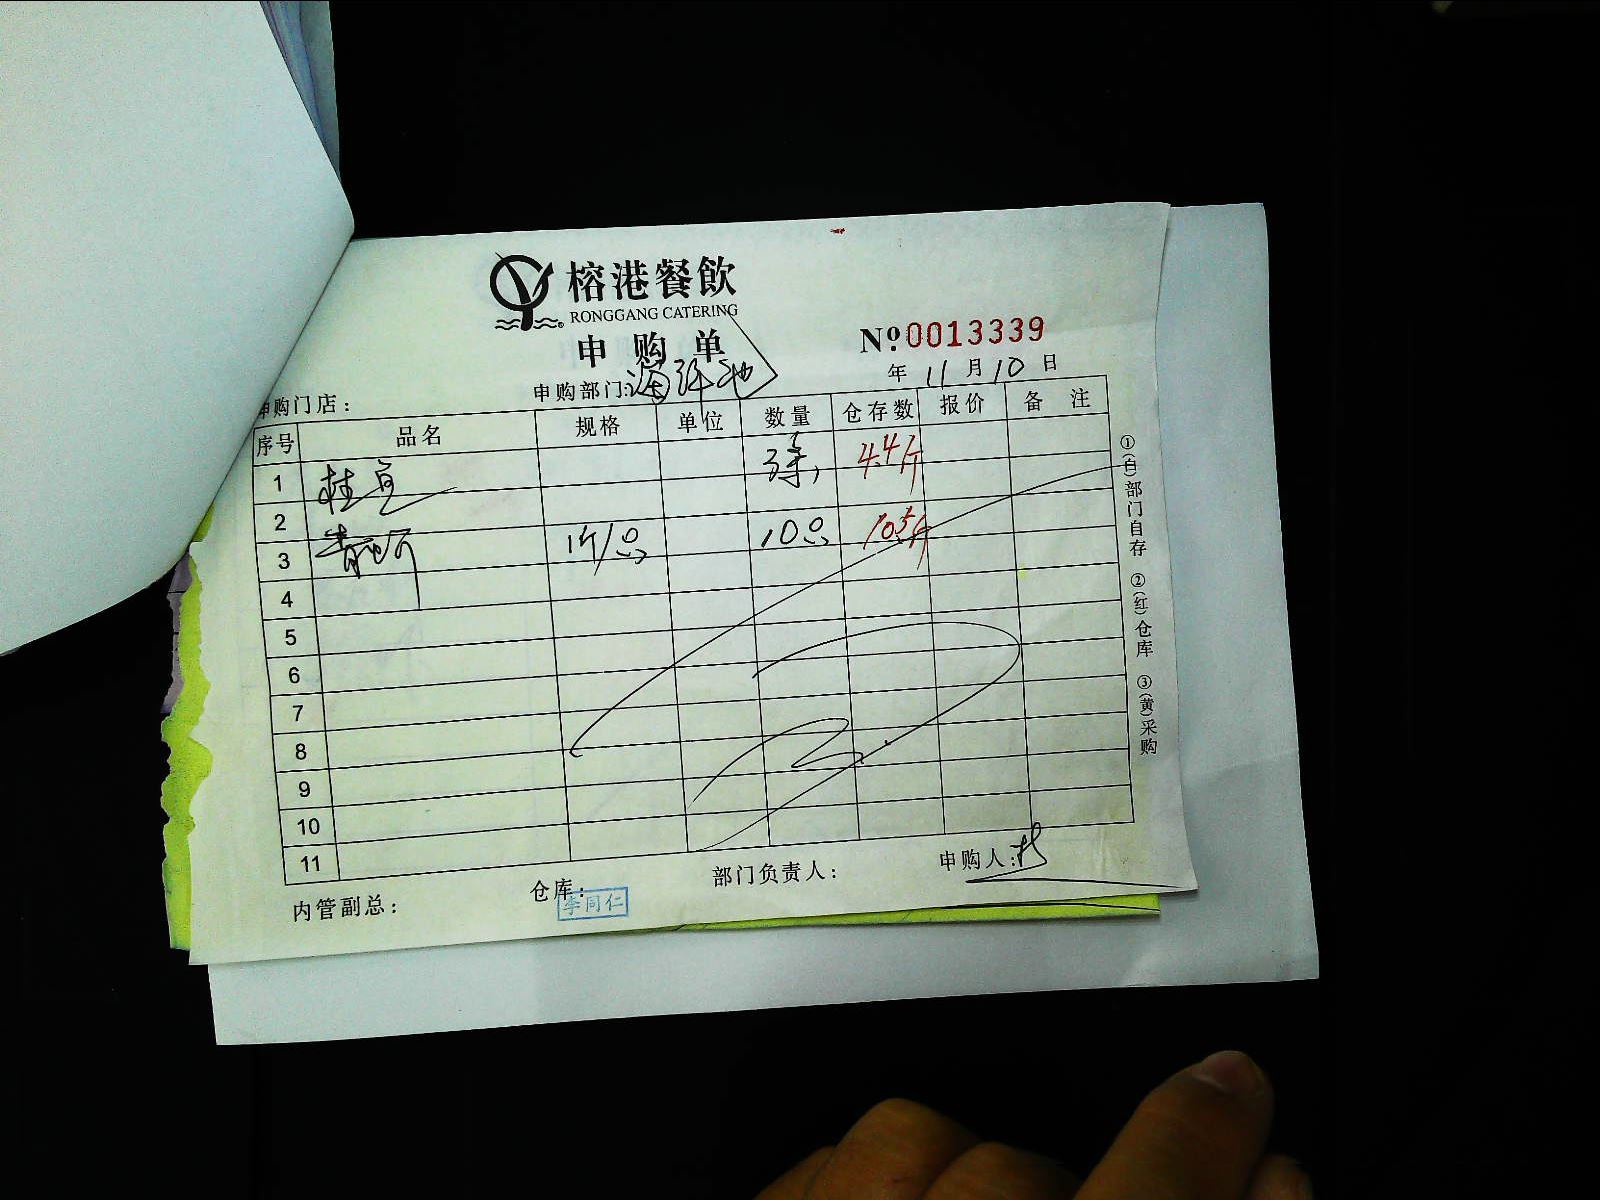 榕港餐飲
RONGGANG CATERING
申购单
№0013339
申购门店：
申购部门：海鲜池
年 11 月 10 日
序号 品名 规格 单位 数量 仓存数 报价 备注
1 桂鱼 3条 4.4斤
2
3 1斤/只 10只 10.5斤
4
5
6
7
8
9
10
11
①(白)部门自存 ②(红)仓库 ③(黄)采购
内管副总：
仓库：李同仁
部门负责人：
申购人：